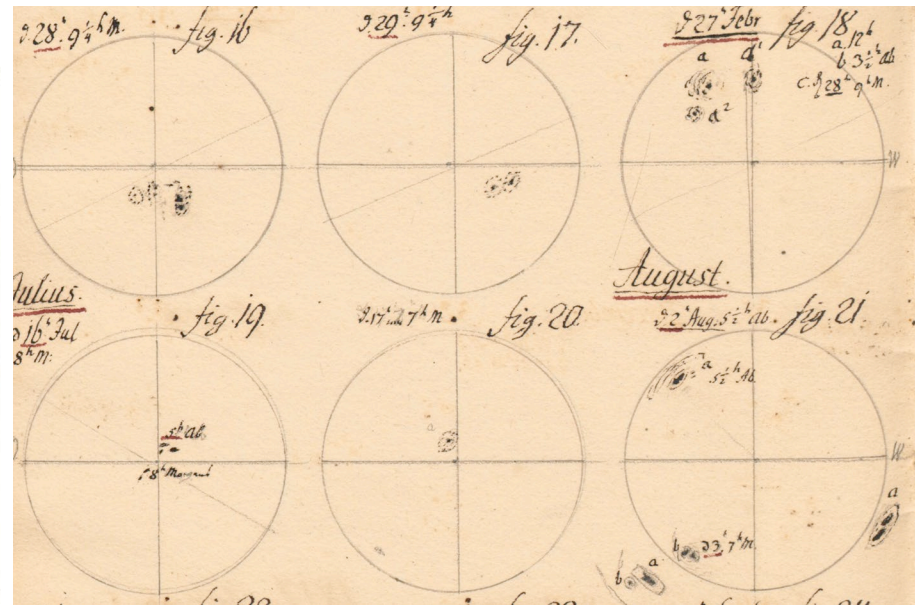 d. 28ᵗ. 9¼ʰ M.
fig. 16
d. 29ᵗ. 9¼ʰ
fig. 17.
d 27ᵗ Febr
fig 18
a. 12ʰ
b 3½ʰ Ab
c. d 28ᵗ 9ʰ M.
a
a¹
a²
W.
Julius.
d 16ᵗ Jul
8ʰ M.
fig. 19.
5ʰ ab.
8ʰ Morgens
d. 17ᵗ 7ʰ M
fig. 20.
August.
d 2ᵗ Aug. 5½ʰ ab.
fig. 21
a
5½ʰ Ab.
W.
a
b
d 3ᵗ 7ʰ M.
b
a